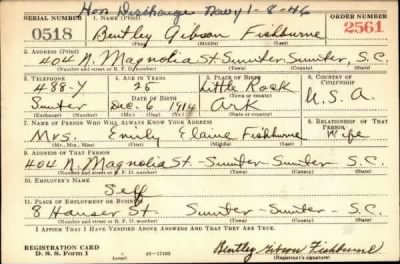 Hon Discharge Navy 1-8-46
SERIAL NUMBER 1. NAME (Print) ORDER NUMBER
0518 Bentley Gibson Fishburne 2561
(First) (Middle) (Last)
2. ADDRESS (Print)
404 N. Magnolia St-Sumter-Sumter, S.C.
(Number and street or R. F. D. number) (Town) (County) (State)
3. TELEPHONE 4. AGE IN YEARS 5. PLACE OF BIRTH 6. COUNTRY OF CITIZENSHIP
488-Y 25 Little Rock
DATE OF BIRTH (Town or county) U.S.A.
Sumter Dec. 6, 1914 Ark
(Exchange) (Number) (Mo.) (Day) (Yr.) (State or country)
7. NAME OF PERSON WHO WILL ALWAYS KNOW YOUR ADDRESS 8. RELATIONSHIP OF THAT PERSON
Mrs. Emily Elaine Fishburne Wife
(Mr., Mrs., Miss) (First) (Middle) (Last)
9. ADDRESS OF THAT PERSON
404 N. Magnolia St.-Sumter-Sumter-S.C.
(Number and street or R. F. D. number) (Town) (County) (State)
10. EMPLOYER'S NAME
Self
11. PLACE OF EMPLOYMENT OR BUSINESS
8 Hauser St- Sumter-Sumter-S.C.
(Number and street or R. F. D. number) (Town) (County) (State)
I AFFIRM THAT I HAVE VERIFIED ABOVE ANSWERS AND THAT THEY ARE TRUE.
REGISTRATION CARD
D. S. S. Form 1 16-17105 Bentley Gibson Fishburne
(Registrant's signature)